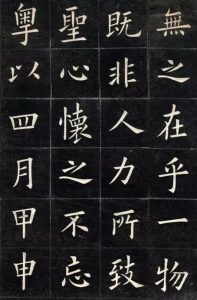 無之在乎一物
既非人力所致
聖心懷之不忘
粵以四月甲申